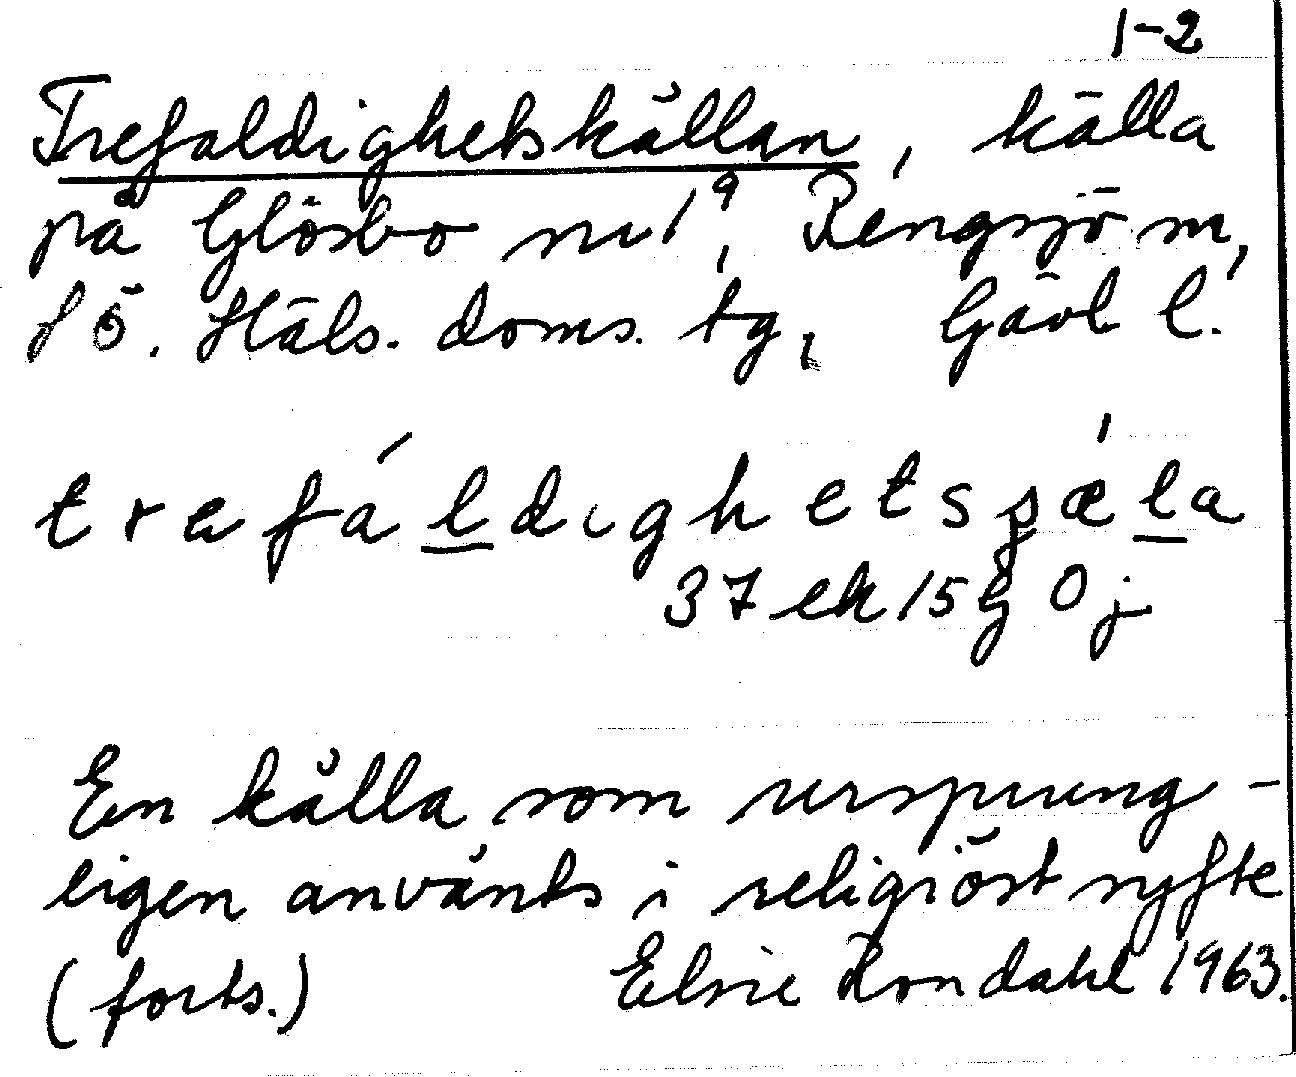 1-2
Trefaldighetskällan, källa
på Glösbo nr 1⁹, Rengsjö sn,
Sö. Häls. doms. tg, Gävl l.
trefáldighetsçæ̀la
37 ek 15g 0j
En källa som ursprung-
ligen använts i religiöst syfte
(forts.) Elsie Rondahl 1963.